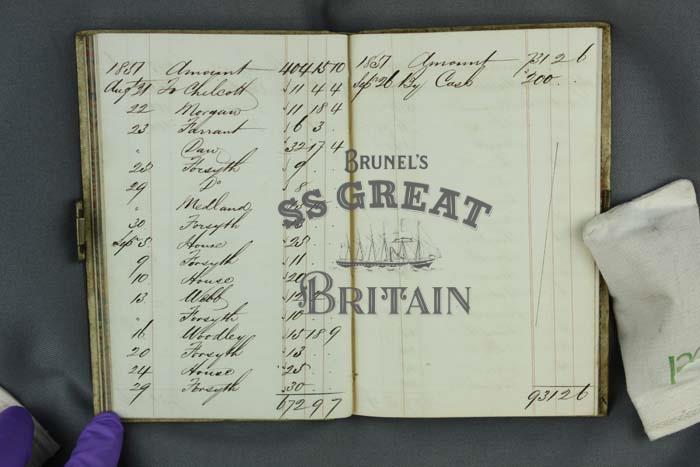 1857 Amount 404 15 10
Augt 21 To Chilcott 11 4 4
22 Morgan 11 18 4
23 Farrant 6 3
" Daw 32 17 4
25 Forsyth 9
29 Do 8
" Medland
30 Forsyth
Sepr 5 House 25
9 Forsyth 11
10 House 20
13 Webb 12
" Forsyth 10
16 Woodley 15 18 9
20 Forsyth 13
24 House 25
29 Forsyth 30
672 9 7
1857 Amount 731 2 6
Sepr 26 By Cash 200
931 2 6
BRUNEL'S
SS GREAT
BRITAIN